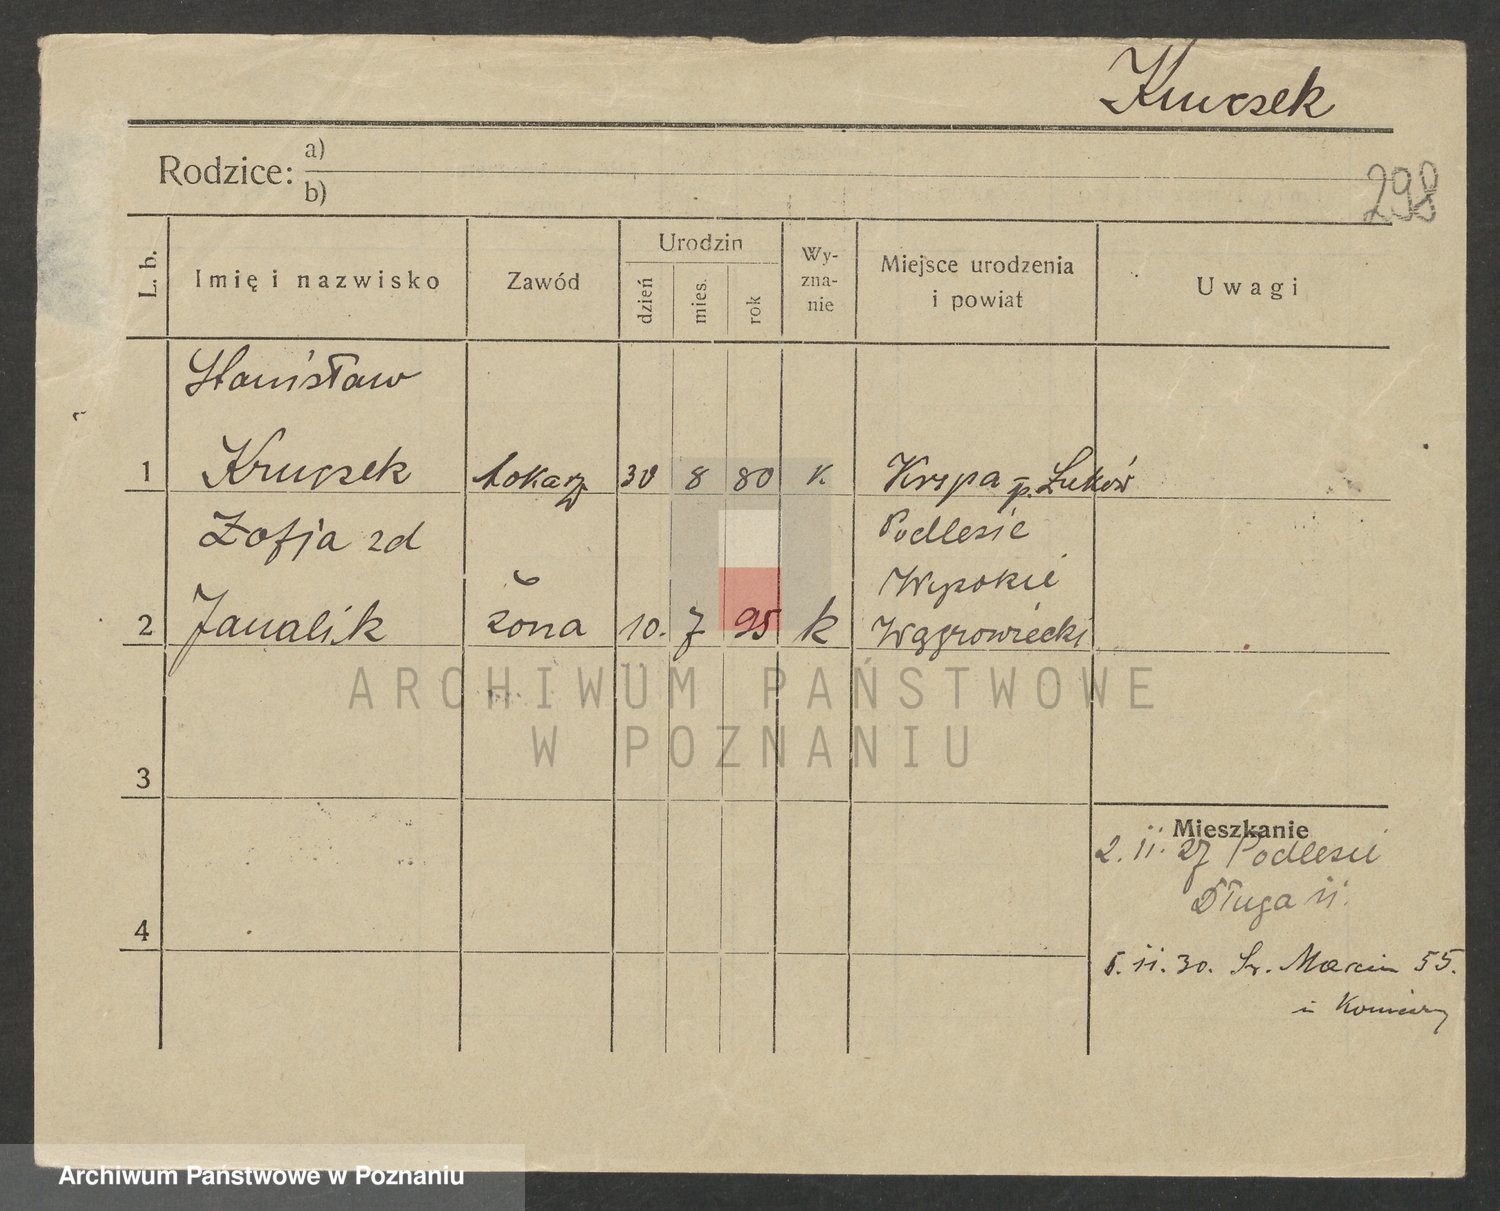 Kruczek
Rodzice: a)
b)
298
L. b.
Imię i nazwisko
Zawód
Urodzin
dzień
mies.
rok
Wy-
zna-
nie
Miejsce urodzenia
i powiat
Uwagi
Stanisław
1 Kruczek tokarz 30 8 80 k. Krępa p. Łuków
Zofja zd Podlesie
Wysokie
2 Janalik żona 10. 7 95 k Wągrowiecki
ARCHIWUM PAŃSTWOWE
W POZNANIU
3
Mieszkanie
2. 11. 27 Podlesie
Długa 11.
4
5. 11. 30. Św. Marcin 55.
Archiwum Państwowe w Poznaniu